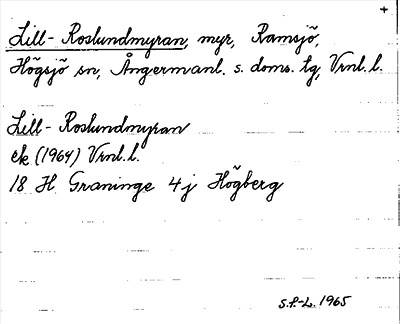 +
Lill-Roslundmyran, myr, Ramsjö,
Högsjö sn, Ångermanl. s. doms. tg, Vrnl. l.
Lill-Roslundmyran
ek (1964) Vrnl. l.
18 H Graninge 4j Högberg
S.P-L. 1965